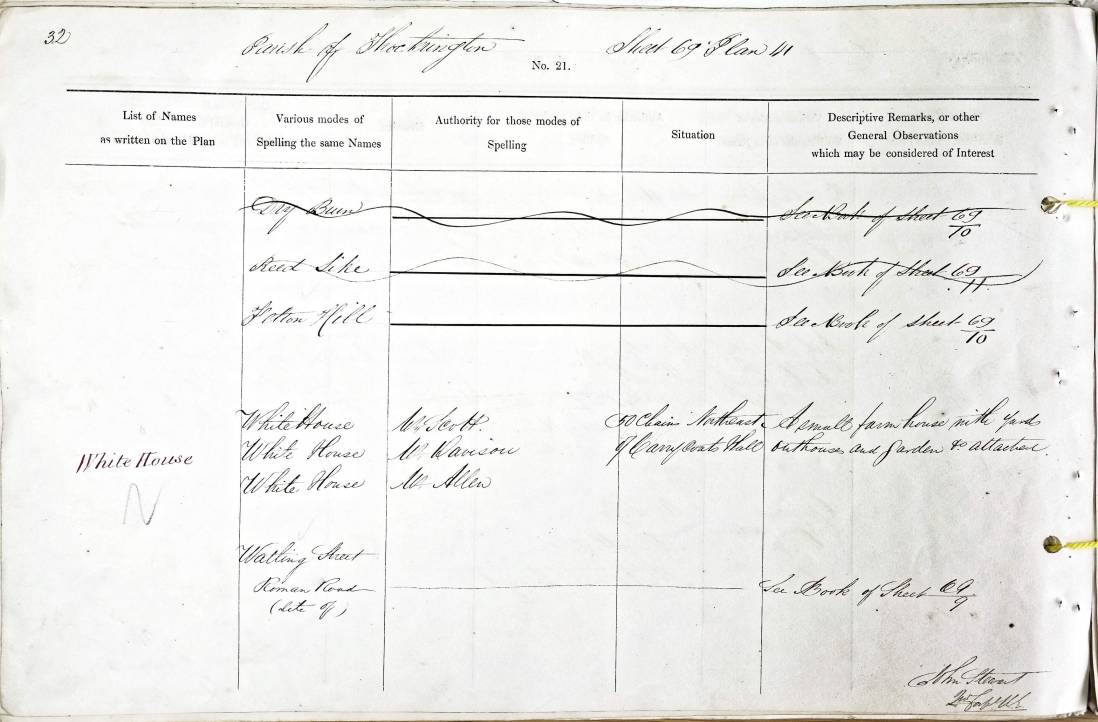 32
Parish of Thockrington Sheet 69 Plan 11
No. 21.
List of Names
as written on the Plan
Various modes of
Spelling the same Names
Authority for those modes of
Spelling
Situation
Descriptive Remarks, or other
General Observations
which may be considered of Interest
Dry Burn See Book of Sheet 69/10
Reed Sike See Book of Sheet 69/11
Hill See Book of Sheet 69/10
White House Mr Scott 50 Chains Northeast A small farm house with yards
White House White House Mr Davison of Carrycoats Hall outhouses and Garden &c attached.
White House Mr Allen
N
Watling Street
Roman Road See Book of Sheet 69/9
(Site of)
John Stewart